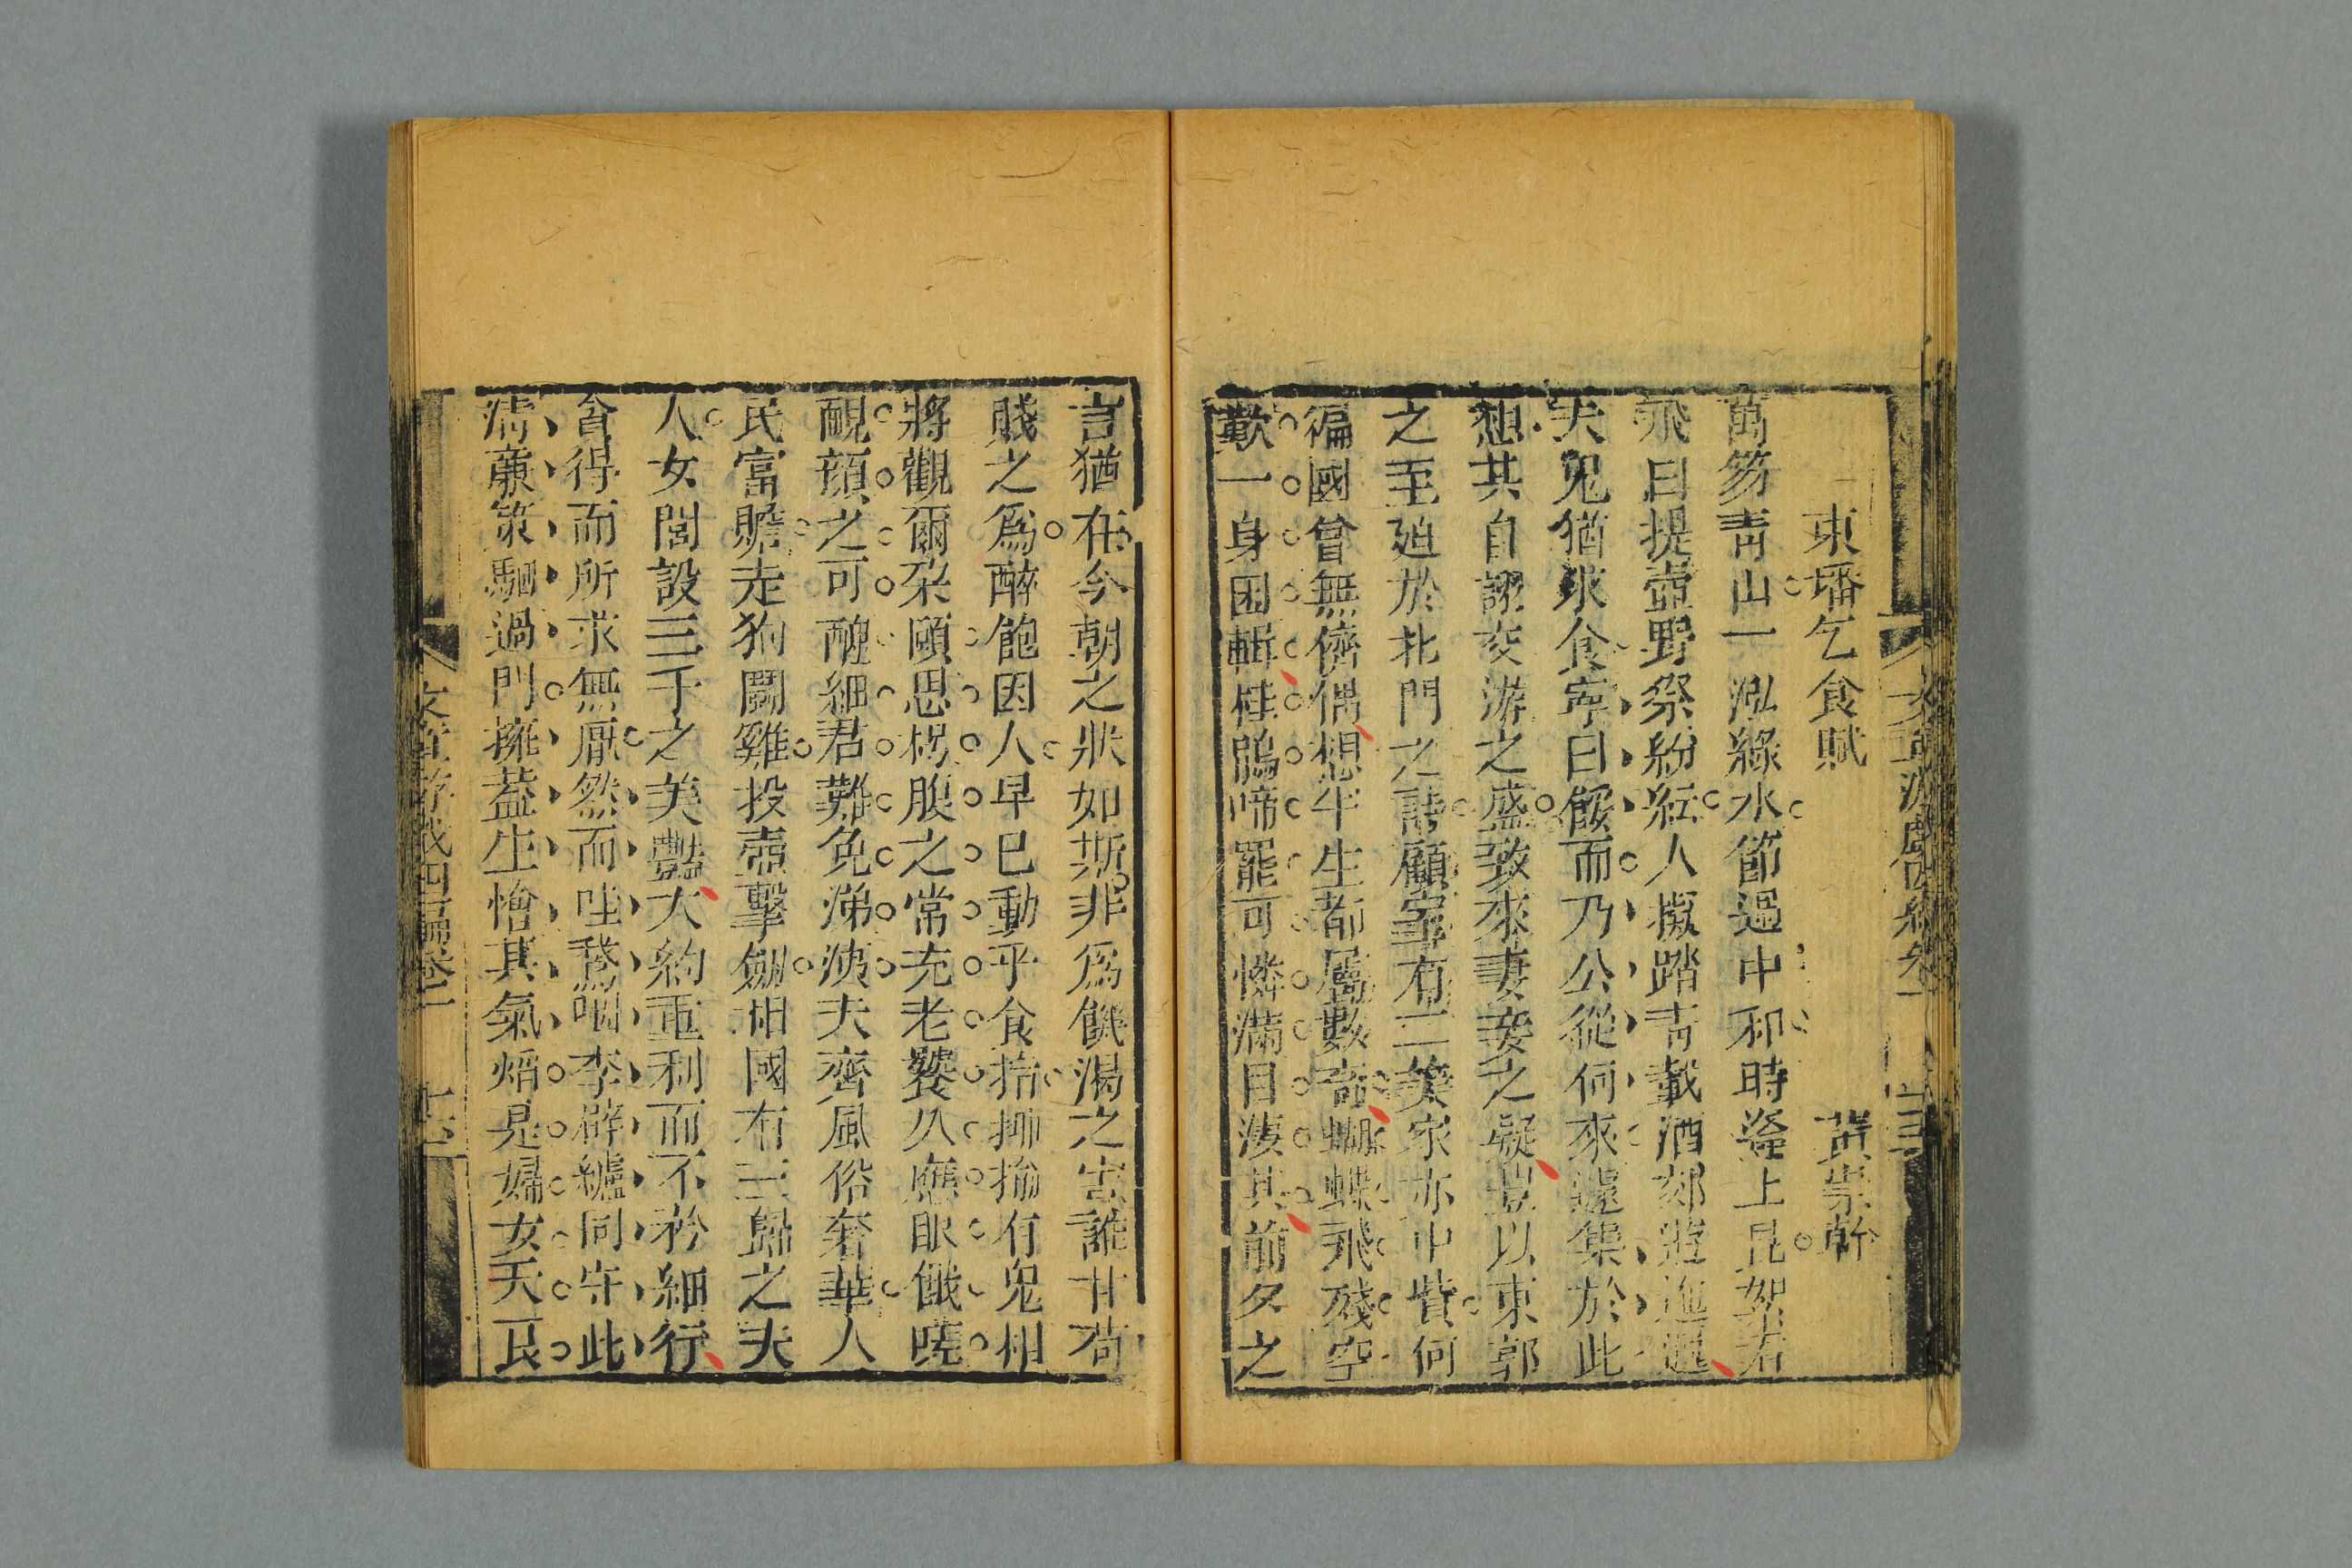 東墦乞食賦
黃崇幹
萬笏青山一泓綠水節過中和時逢上巳絮若
飛日提壺野祭紛紜人檥踏青載酒郊遊
夫鬼猶求食寧曰餒而乃公從何來遽集於此
想其自詡交游之盛致來妻妾之疑豈以東郭
之至廼於北門之詩顧室有二美家亦中貲何
徧國曾無儕偶想半生都屬數奇蝴蝶飛殘空
歎一身困輯桂鵑啼罷可憐滿目淒其前夕之
言猶在今朝之狀如斯非爲饑渴之害誰甘苟
賤之爲醉飽因人早已動乎食指揶揄有鬼相
將觀爾朶頤思枵腹之常充老饕久應眼餓嗟
靦顔之可醜細君難免涕洟夫齊風俗奢華人
民富贍走狗鬭雞投壺擊劍相國有三歸之夫
人女閭設三千之美豔大約重利而不矜細行
貪得而所求無厭然而哇鵞咽李辟纑同守此
清廉策駟過門擁蓋生憎其氣焰是婦女天良
文章游戲四編卷二